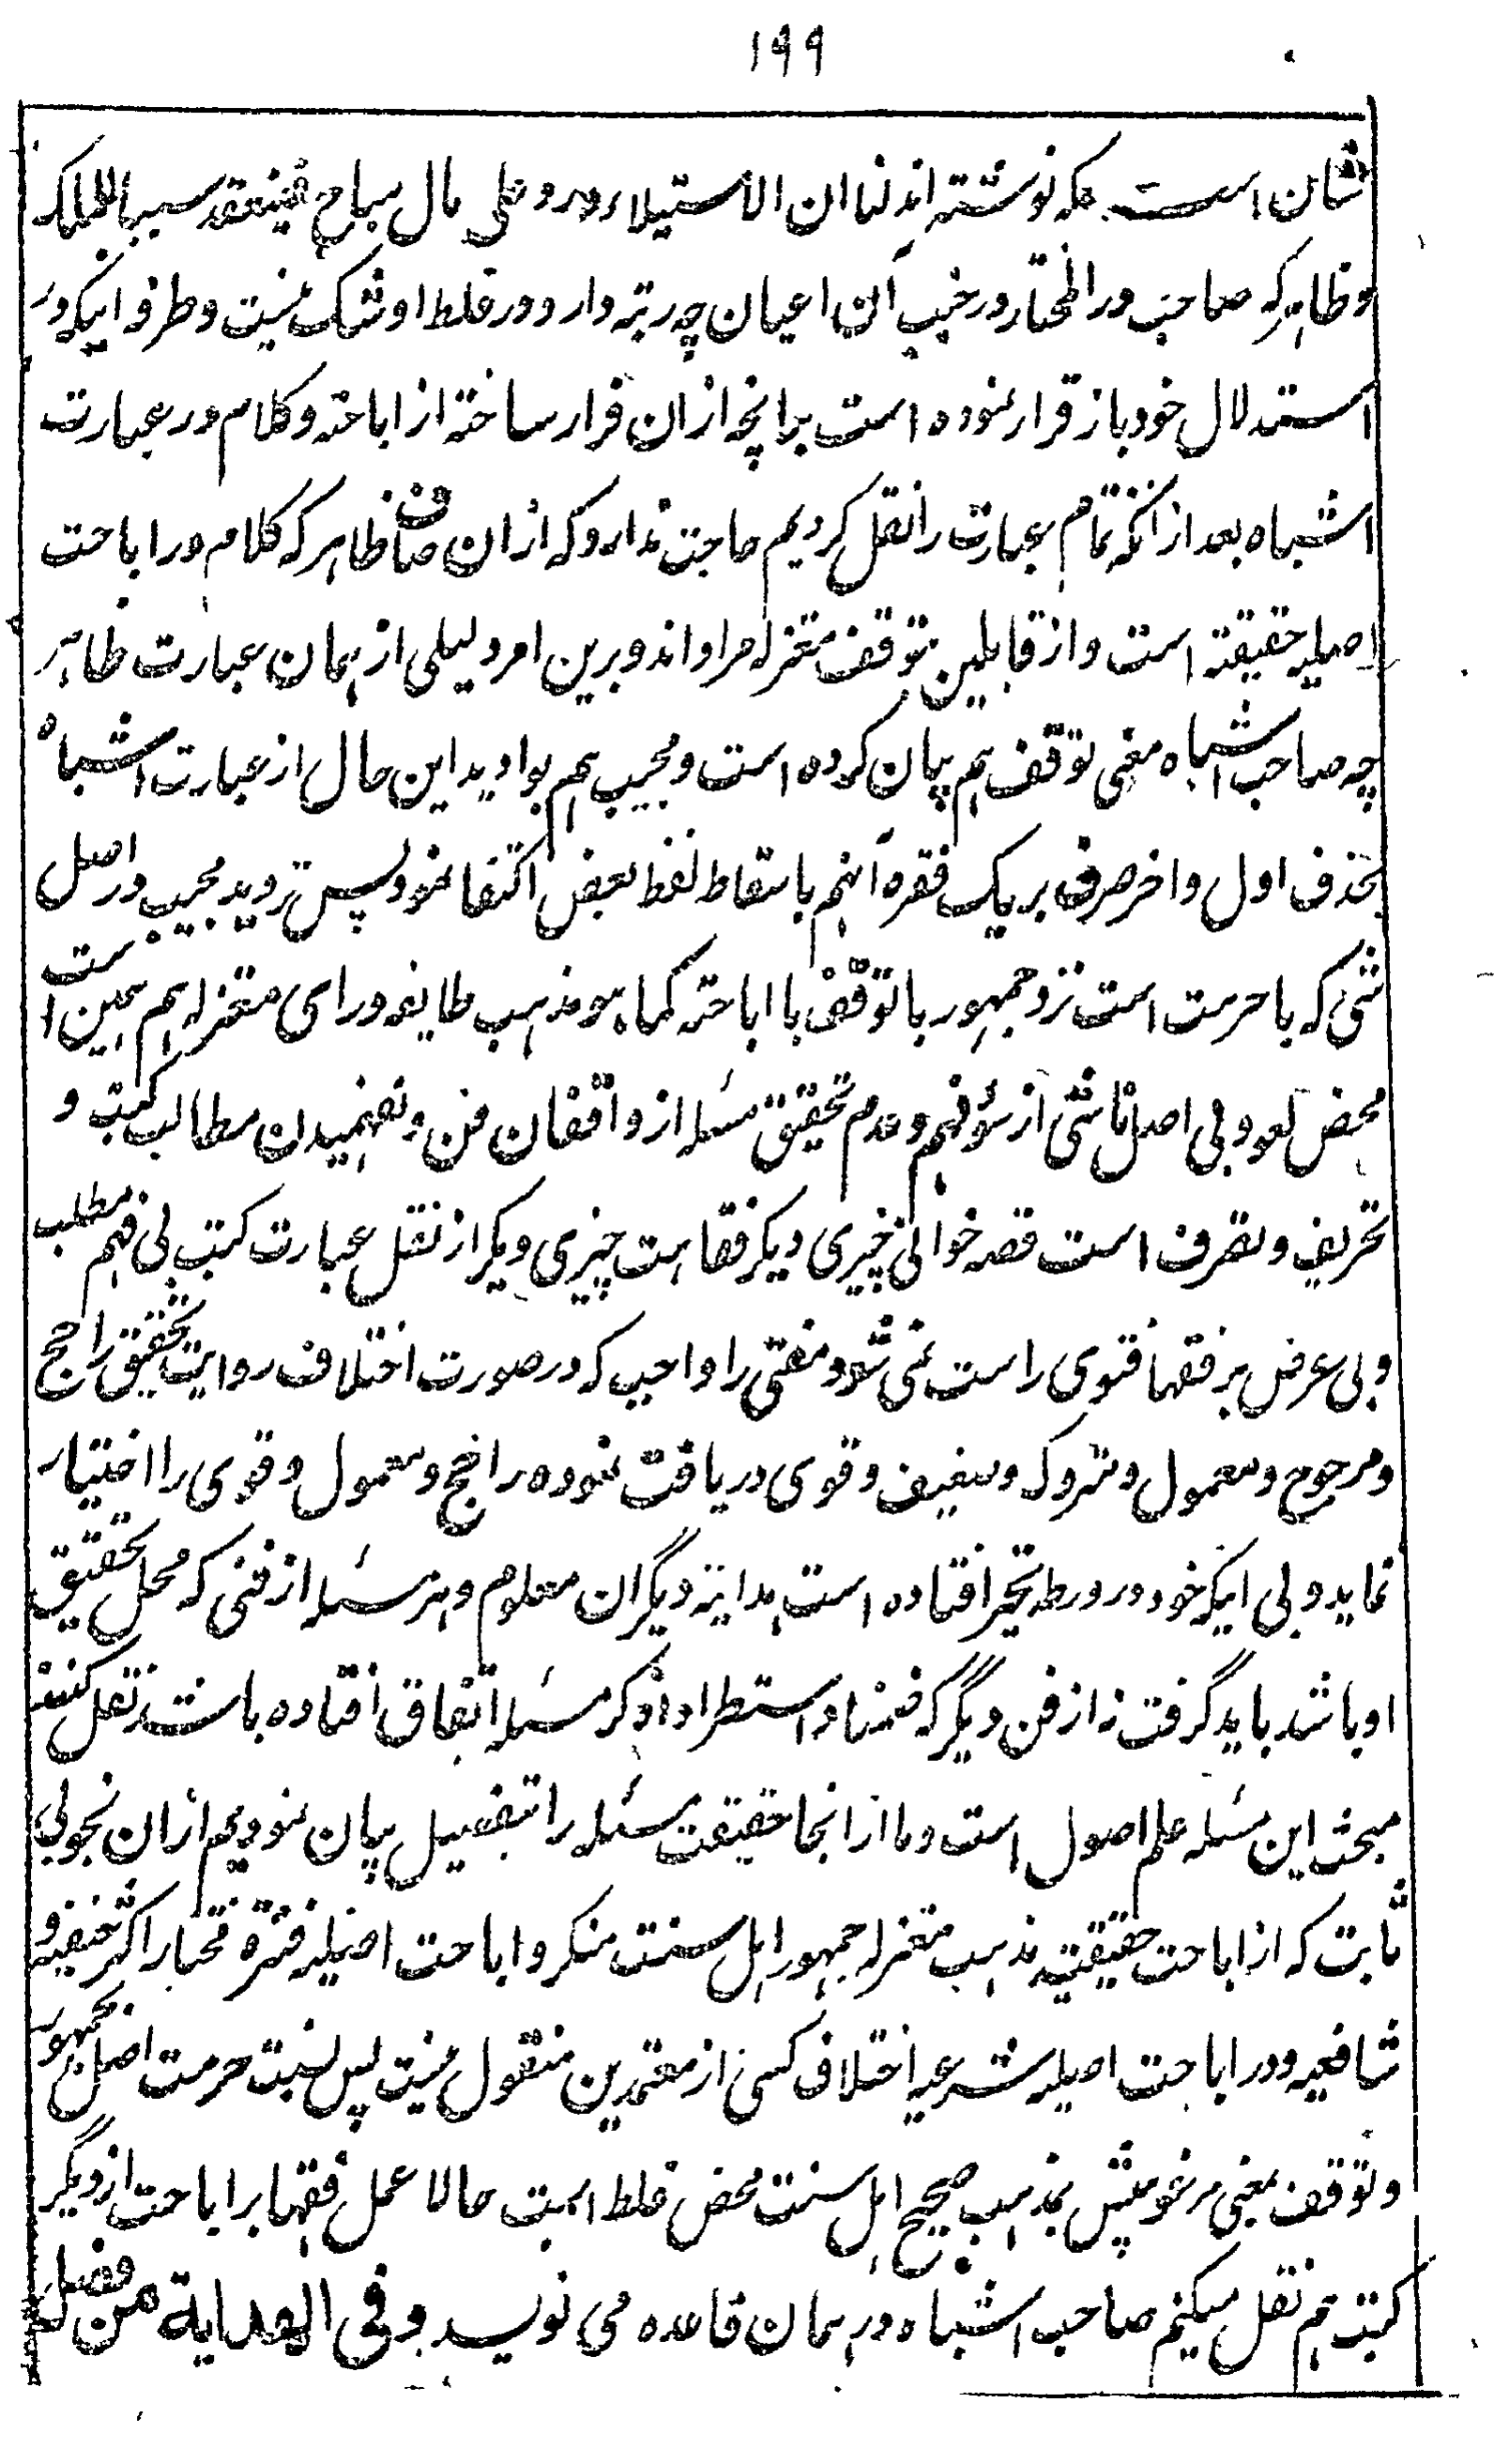 ۱۹۹
شان است بلکه نوشته اند لنا ان الاستیلاء ورد علی مال مباح فینعقد سببا للملک
و ظاهر که صاحب در المختار در جنب آن اعیان چه رتبه دارد و در غلط او شک نیست و طرفه اینکه در
استدلال خود باز قرار نموده است برانچه ازان فرار ساخته از اباحته و کلام در عبارت
اشباه بعد ازانکه تمام عبارت را نقل کردیم حاجت ندارد که ازان صاف ظاهر که کلام در اباحت
اصلیه حقیقته است و از قایلین توقف معتزله مراد اند و برین امر دلیلی از همان عبارت ظاهر
چه صاحب اشباه معنی توقف هم بیان کرده است و مجیب هم بوادید این حال از عبارت اشباه
بحذف اول و اخر صرف بر یک فقره آنهم باسقاط لفظ بعض اکتفا نمود پس تردید مجیب در اصل
شی که یا حرمت است نزد جمهور یا توقف یا اباحته کما هو مذهب طایفه ورای معتزله هم همین است
محض لغو و بی اصل ناشی از سؤ فهم و عدم تحقیق مسئله از واقفان فن و نفهمیدن مطالب کتب و
تحریف و تصرف است قصه خوانی چیزی دیگر فقاهت چیزی دیگر از نقل عبارت کتب بی فهم مطلب
و بی عرض بر فقها فتوی راست نمی شود و مفتی را واجب که در صورت اختلاف روایت بتحقیق راجح
و مرجوح و معمول و متروک و ضعیف و قوی دریافت نموده راجح و معمول و قوی را اختیار
نماید و بی اینکه خود در ورطه تحیر افتاده است هدایة دیگران معلوم و هر مسئله از فنی که محل تحقیق
او باشد باید گرفت نه از فن دیگر که ضمنا و استطرادا ذکر مسئله اتفاق افتاده باشد نقل کنند
مبحث این مسئله علم اصول است و ما ازانجا حقیقت مسئله را بتفصیل بیان نمودیم ازان بخوبی
ثابت که از اباحت حقیقیه مذهب معتزله جمهور اهل سنت منکر و اباحت اصلیه مختار اکثر حنفیه و
شافعیه و در اباحت اصلیه شرعیه اختلاف کسی از معتمدین منقول نیست پس نسبت حرمت اصل بجمهور
و توقف بمعنی مزعومش بمذهب صحیح اهل سنت محض غلط است حالا عمل فقها بر اباحت از دیگر
کتب هم نقل میکنم صاحب اشباه در همان قاعده می نویسد و فی الهدایة من فصل